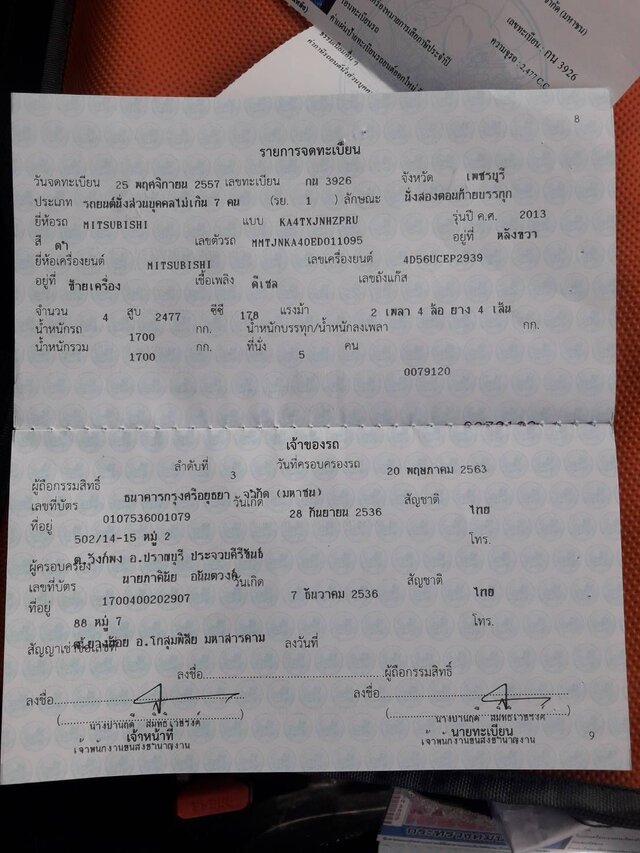 จำกัด (มหาชน)
เลขทะเบียน กน 3926
8
รายการจดทะเบียน
วันจดทะเบียน 25 พฤศจิกายน 2557 เลขทะเบียน กน 3926 จังหวัด เพชรบุรี
ประเภท รถยนต์นั่งส่วนบุคคลไม่เกิน 7 คน (รย. 1 ) ลักษณะ นั่งสองตอนท้ายบรรทุก
ยี่ห้อรถ MITSUBISHI แบบ KA4TXJNHZPRU รุ่นปี ค.ศ. 2013
สี ดำ เลขตัวรถ MMTJNKA40ED011095 อยู่ที่ หลังขวา
ยี่ห้อเครื่องยนต์ MITSUBISHI เลขเครื่องยนต์ 4D56UCEP2939
อยู่ที่ ซ้ายเครื่อง เชื้อเพลิง ดีเซล เลขถังแก๊ส
จำนวน 4 สูบ 2477 ซีซี 178 แรงม้า 2 เพลา 4 ล้อ ยาง 4 เส้น
น้ำหนักรถ 1700 กก. น้ำหนักบรรทุก/น้ำหนักลงเพลา กก.
น้ำหนักรวม 1700 กก. ที่นั่ง 5 คน
0079120
เจ้าของรถ
ลำดับที่ 3 วันที่ครอบครองรถ 20 พฤษภาคม 2563
ผู้ถือกรรมสิทธิ์ ธนาคารกรุงศรีอยุธยา จำกัด (มหาชน)
เลขที่บัตร 0107536001079 วันเกิด 28 กันยายน 2536 สัญชาติ ไทย
ที่อยู่ 502/14-15 หมู่ 2 โทร.
ต.วังก์พง อ.ปราณบุรี ประจวบคีรีขันธ์
ผู้ครอบครอง นายภาคินัย อนันตวงค์
เลขที่บัตร 1700400202907 วันเกิด 7 ธันวาคม 2536 สัญชาติ ไทย
ที่อยู่ 88 หมู่ 7 โทร.
อ.โกสุมพิสัย มหาสารคาม
สัญญาเช่าซื้อเลขที่ ลงวันที่
ลงชื่อ ผู้ถือกรรมสิทธิ์
ลงชื่อ ลงชื่อ
เจ้าหน้าที่ นายทะเบียน
9